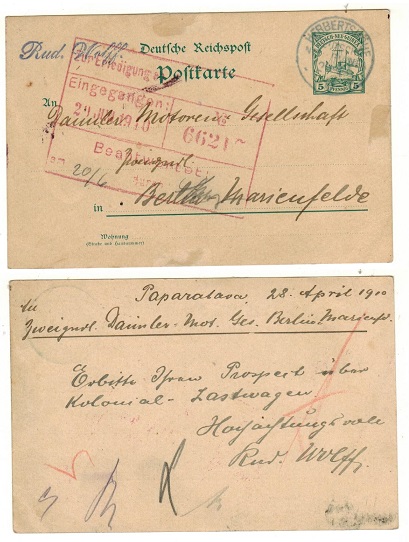 Rud. Wolff.
Deutsche Reichspost
Postkarte
HERBERTSHÖHE
5
5
Zur Erledigung
Eingegangen:
1910
6621
An
Daimler Motoren-Gesellschaft
Zweignl.
20/6
in Berlin Marienfelde
Wohnung
(Straße und Hausnummer)
Paparatava, 28. April 1910
Zweignl. Daimler-Mot. Ges. Berlin Marienf.
Erbitte Ihren Prospect über
Kolonial-Lastwagen
Hochachtungsvoll
Rud. Wolff.